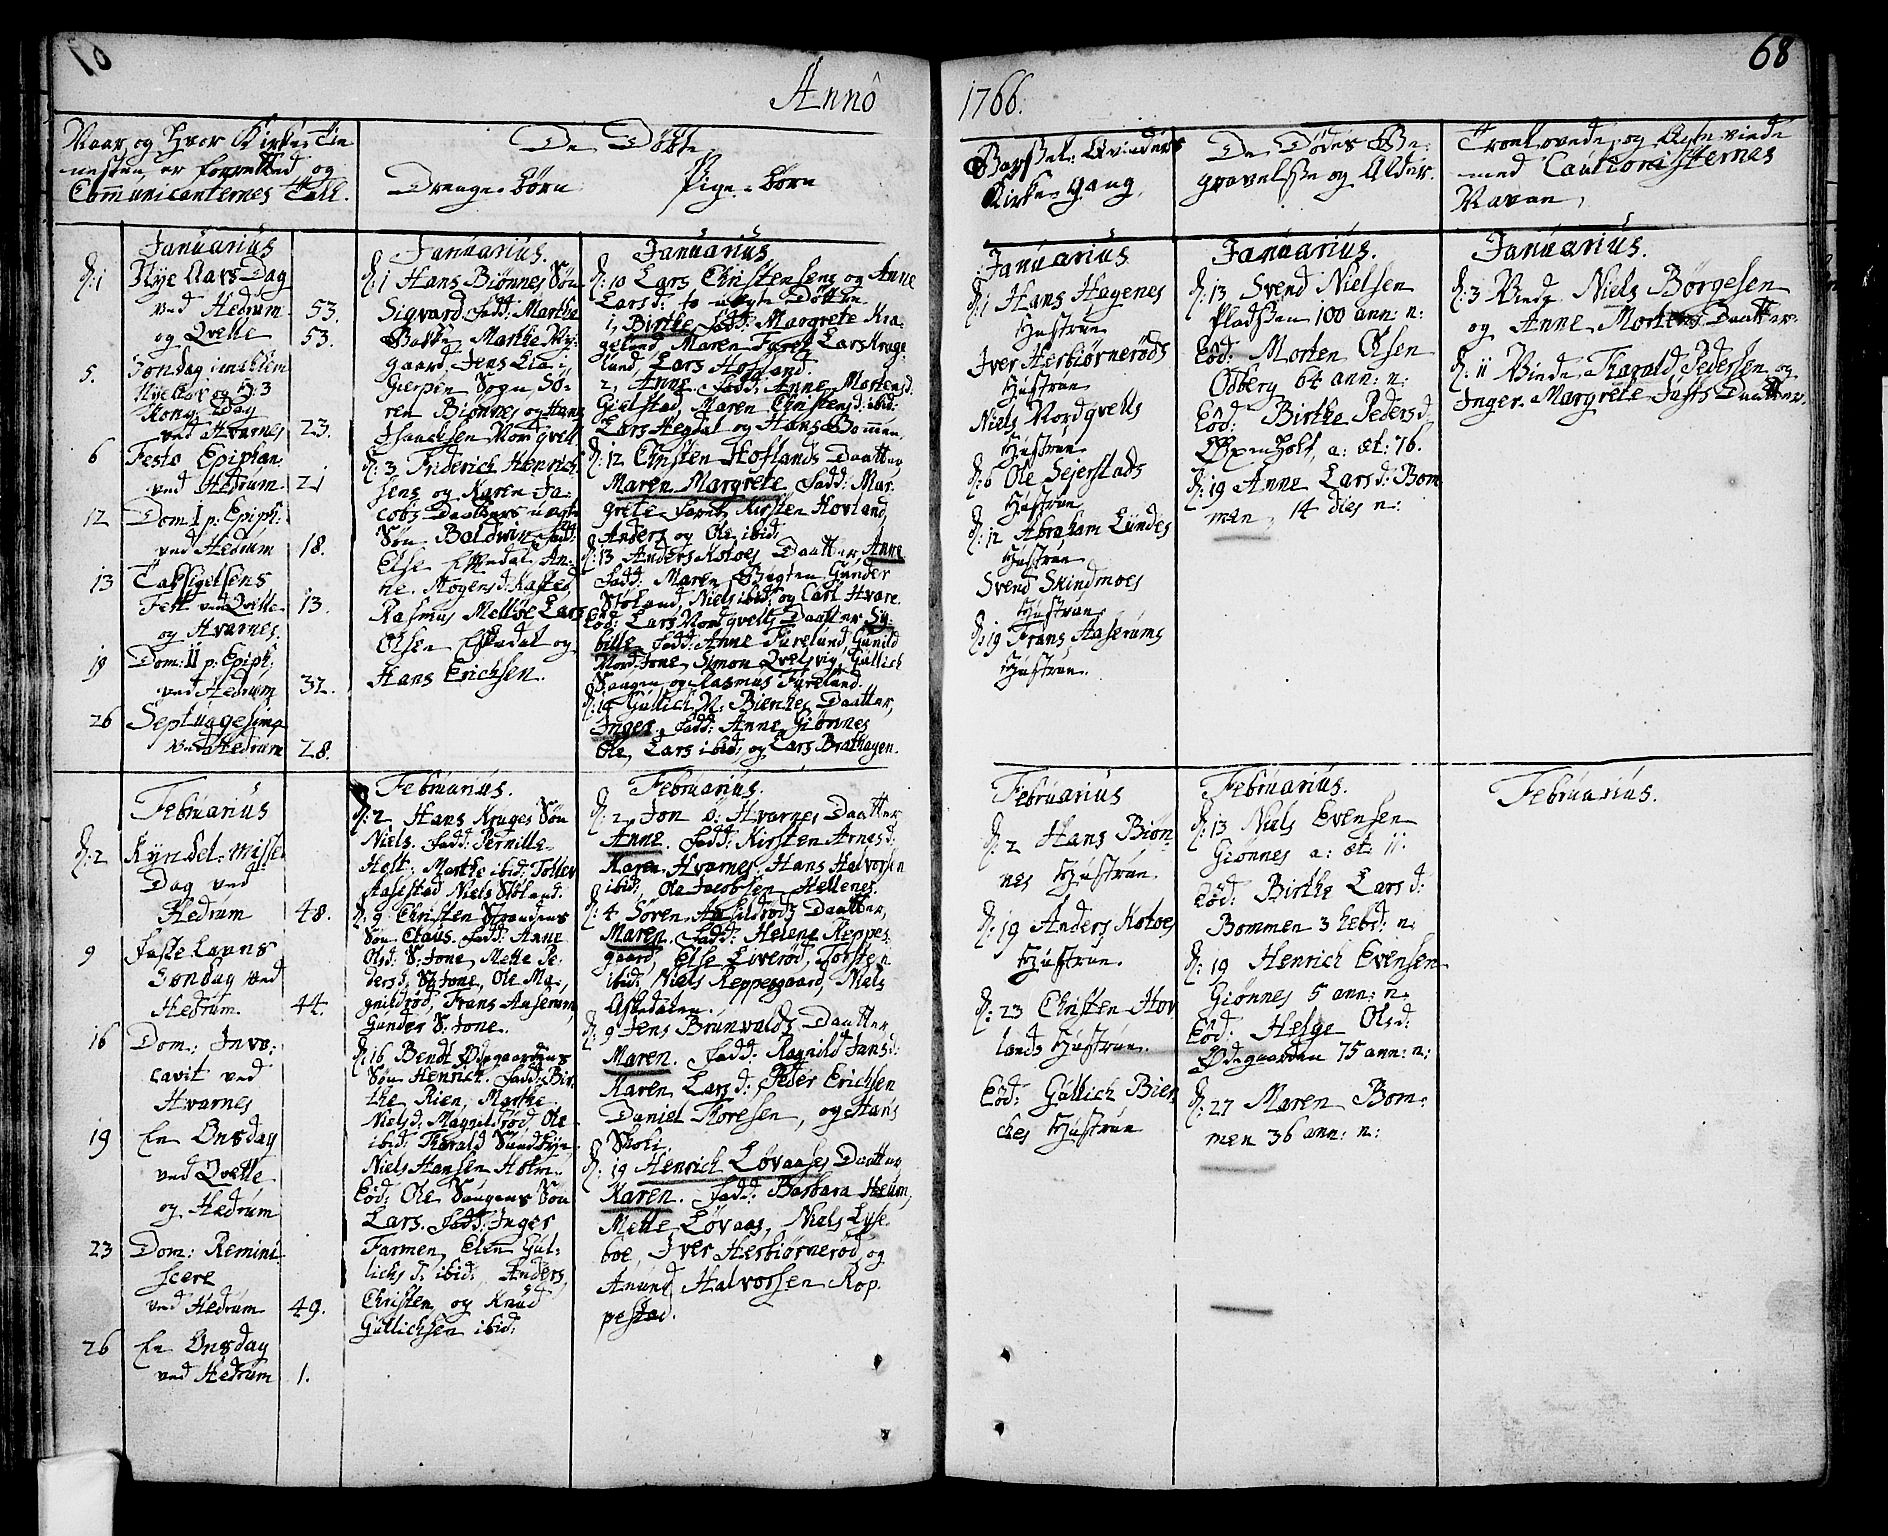 68
Annô 1766.
Naar og Hvor Kirke-Tie
nesten er forretted og
Communicanternes Tall.
De Döbte
Drenge-börn
Pige-börn
Barsel: Qvinders
Kirke-gang.
De Dödes Be-
gravelse og Alder.
Troelovede og Ægte viede
med Cautionisternes
Navne,
Januarius
d: 1 Nye Aars Dag
ved Hedrum 53.
og Qvelle 53.
5. Söndag imellem
Nyeaar og H: 3
Kong: Dag
ved Hvarnes 23.
6 Festo Epiphan:
ved Hedrum 21
12 Dom: I p: Epiph:
ved Hedrum 18.
13 Taksigelsens
Fest ved Qvelle 13.
og Hvarnes.
19 Dom: II p: Epiph:
ved Hedrum 32.
26 Septuagesima
ved Hedrum 28.
Januarius.
d: 1 Hans Biönnes Sön
Sigvard fadd: Marthe
Bakke, Marthe Ny-
gaard, Jens Lia i
Gierpen Sogn, Sö-
ren Biönnes og Hans
Isaachsen Nordqvell
d: 3 Friderich Henrich-
sens og Karen Ja-
cobs Daatters uægte
Sön Baldwin, fadd:
Else Eskedal, An-
ne Mogensd: Kaste,
Rasmus Melløe Lars
Olsen Eskedal og
Hans Erichsen.
Januarius
d: 10 Lars Christensens og Anne
Larsd: to uægte Döttre
1, Birthe, fadd: Margrete Kra-
gelund, Maren Furet Lars Krage-
lund, Lars Hofland.
2, Anne. fadd: Anne Mortensd:
Gielstad, Maren Christensd: ibid:
Lars Hegdal og Hans Bommen.
d: 12 Christen Hoflands Daatter
Maren Margrete fadd: Mar-
grete Furet, Kirsten Hovland
Anders og Ole ibid:
d: 13 Anders Koloes Daatter Anne
fadd: Maren Bøgten Gunder
Støland, Niels ibid: og Carl Hvarn.
Eod: Lars Nordqvells Daatter Sy-
bille fadd: Anne Fureland, Gunild
Nord-Jone, Simon Qvelsvig, Gullich
Saugen og Rasmus Fureland.
d: 19 Gullich N: Bienkes Daatter,
Inger. fadd: Anne Giönnes
Ole, Lars ibid: og Lars Brathagen.
Januarius
d: 1 Hans Hagenes
Hustrue
Iver Herbiörneröds
Hustrue
Niels Nordqvells
Hustrue
d: 6 Ole Sejerstads
Hustrue
d: 12 Abraham Lundes
Hustrue
Svend Skindmoes
Hustrue
d: 19 Frans Aaserums
Hustrue.
Januarius.
d: 13 Svend Nielsen
Pladssen 100 ann: n:
Eod: Morten Olsen
Odberg 64 ann: n:
Eod: Birthe Pedersd:
Øxenholt, a: æt: 76.
d: 19 Anne Larsd: Bom
men, 14 dies n:
Januarius.
d: 3 Viede Niels Börgesen
og Anne Mortens Daatter.
d: 11 Viede Tharald Pedersen og
Inger Margrete Justs Daatter.
Februarius
d: 2 Kyndel-Misse
Dag ved
Hedrum 48.
9 Faste Lavns
Söndag ved
Hedrum. 44.
16 Dom: Invo-
cavit ved
Hvarnes
19 En Onsdag
ved Qvelle
og Hedrum
23 Dom: Remini-
scere
ved Hedrum 49.
26 En Onsdag
ved Hedrum 1.
Februarius.
d: 2 Hans Kruges Sön
Niels. fadd: Pernille
Holt, Marthe ibid: Tollev
Aasestad Niels Støland.
d: 9 Christen Strandens
Sön Claus. fadd: Anne
Olsd: S: Jone, Mette Pe-
dersd: S: Jone, Ole Ma-
gnildröd, Frans Aaserum,
Gunder S: Jone.
d: 16 Bendt Ødegaardens
Sön Henrich. fadd: Bir-
the Rien, Marthe
Nielsd: Magnildröd, Ole
ibid: Tharald Sundbye,
Niels Hansen Holm.
Eod: Ole Saugens Sön
Lars. fadd: Inger
Farmen, Elen Gul-
lichsd: ibid: Anders,
Christen og Knud
Gullichsen ibid:
Februarius.
d: 2 Jon ö: Hvarnes Daatter
Anne. fadd: Kirsten Arnesd:
Karen Hvarnes, Hans Halvorsen
ibid: Ole Jacobsen Hellenes.
d: 4 Sören Askildröds Daatter,
Maren. fadd: Helene Reppes-
gaard, Else Liveröd, Torsten
ibid: Niels Reppesgaard, Niels
Askedalen.
d: 9 Jens Brunvalds Daatter
Maren. fadd: Ragnild Jansd:
Karen Larsd: Peder Erichsen
Daniel Thoresen, og Hans
Skoli
d: 19 Henrich Løvaases Daatter
Karen. fadd: Barbara Heum,
Mette Løvaas, Niels Lyse-
boe, Iver Herbiörneröd og
Anund Halvorsen Rop-
pestad.
Februarius
d: 2 Hans Biön-
nes Hustrue.
d: 19 Anders Koloes
Hustrue.
d: 23 Christen Hov
lands Hustrue.
Eod: Gullich Bien-
ches Hustrue
Februarius.
d: 13 Niels Evensen
Giönnes a: æt: 11.
Eod: Birthe Larsd:
Bommen 3 hebd: n:
d: 19 Henrich Evensen
Giönnes 5 ann: n:
Eod: Helge Olsd:
Ødegaarden 75 ann: n:
d: 27 Maren Bom-
men 36 ann: n:
Februarius.